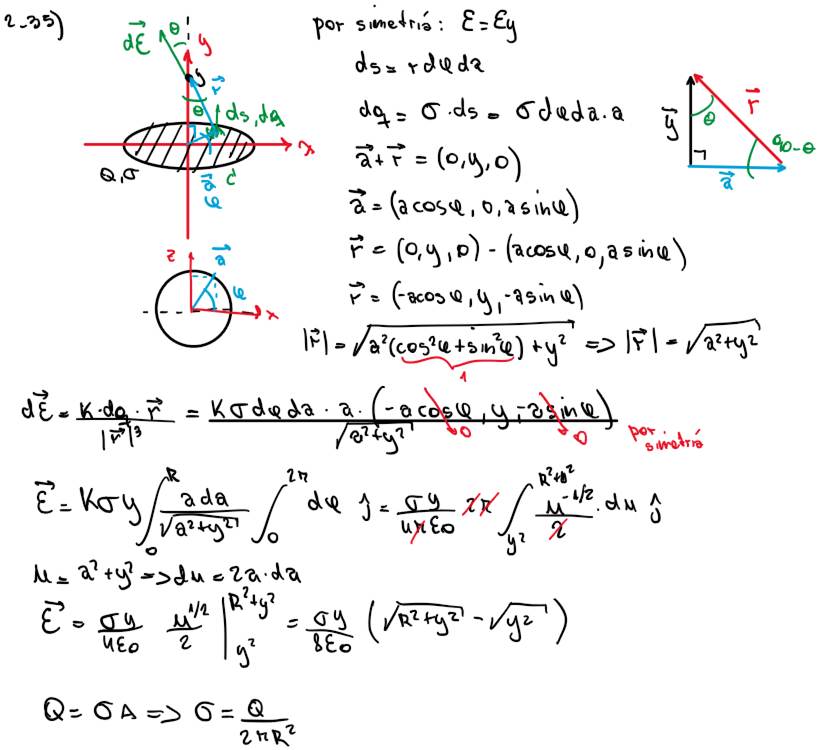 2-35)
por simetría: E = Ey
ds = r dφ da
dq = σ · ds = σ dφ da · a
a⃗ + r⃗ = (0, y, 0)
a⃗ = (a cos φ, 0, a sin φ)
r⃗ = (0, y, 0) - (a cos φ, 0, a sin φ)
r⃗ = (-a cos φ, y, -a sin φ)
|r⃗| = √(a²(cos²φ + sin²φ) + y²) => |r⃗| = √(a² + y²)
1
dE⃗ θ y
y r⃗
θ ds, dq
x
Q, σ a⃗ d
φ
z a⃗
φ x
y⃗ θ r⃗
90-θ
a⃗
dE⃗ = K · dq · r⃗ / |r⃗|³ = K σ dφ da · a · (-a cos φ, y, -a sin φ) / √(a² + y²)
0 0 por simetría
E⃗ = K σ y ∫₀ᴿ a da / √(a² + y²) ∫₀²π dφ ĵ = σ y / 4πε₀ 2π ∫_{y²}^{R²+y²} u^{-1/2} / 2 · du ĵ
u = a² + y² => du = 2a · da
E⃗ = σ y / 4ε₀ u^{1/2} / 2 |_{y²}^{R²+y²} = σ y / 8ε₀ (√(R² + y²) - √y²)
Q = σ A => σ = Q / 2πR²